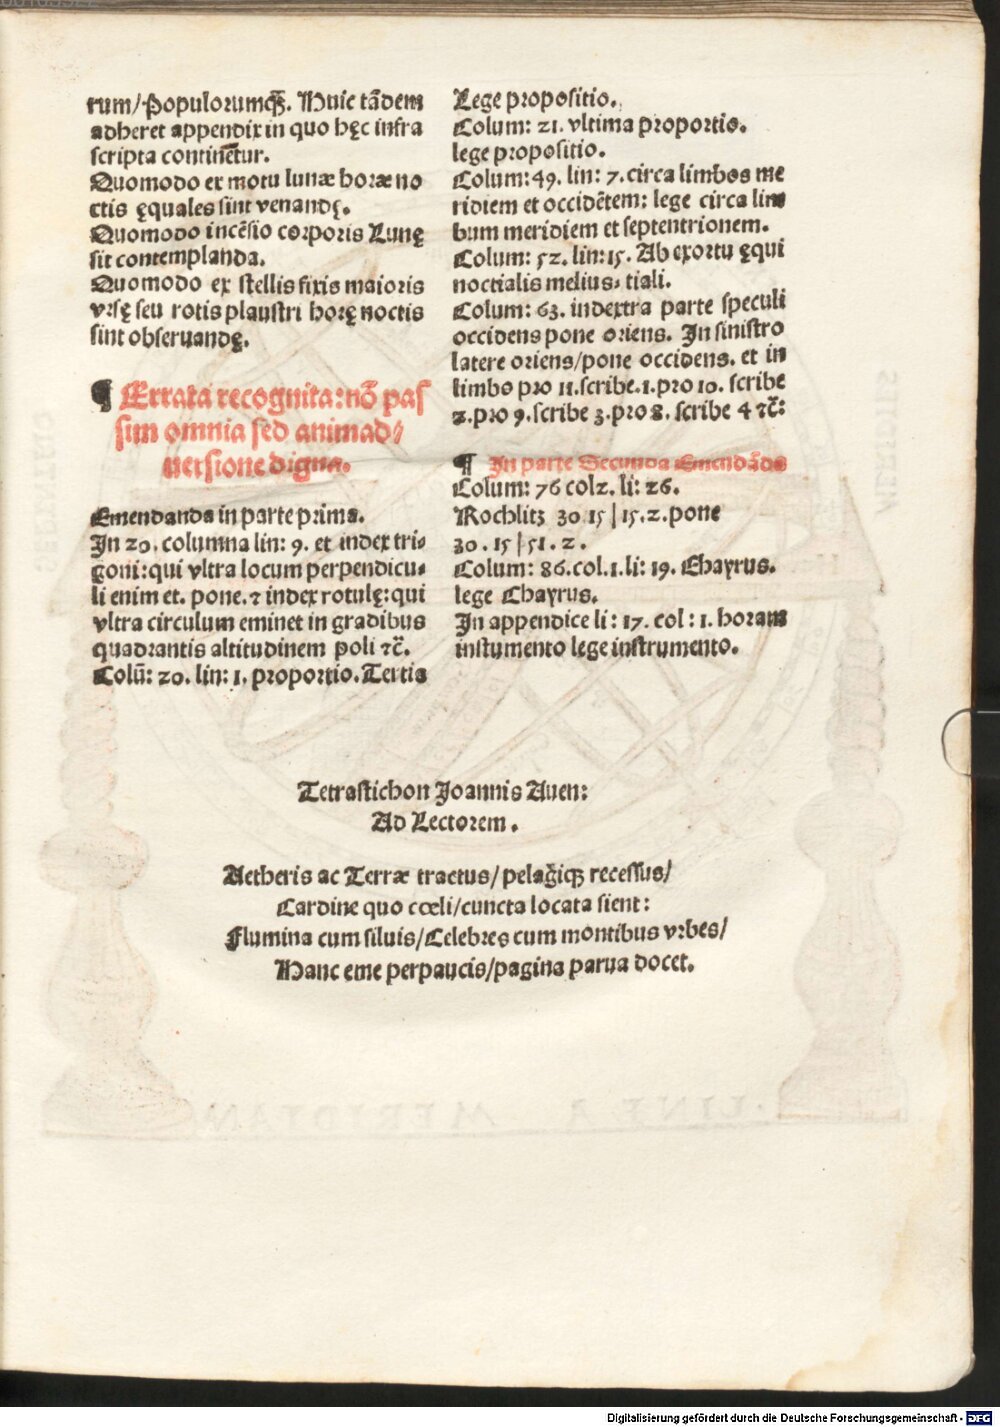 rum/Populorumqꝫ. Huic tādem
adheret appendix in quo hęc infra
scripta continētur.
Quomodo ex motu lunæ horæ no
ctis ęquales sint venandę.
Quomodo incēsio corporis Lunę
sit contemplanda.
Quomodo ex stellis fixis maioris
vrsę seu rotis plaustri horę noctis
sint obseruandę.
¶ Errata recognita: nō pas
sim omnia sed animad/
uersione digna.
Emendanda in parte prima.
In 20. columna lin: 9. et index tri-
goni: qui vltra locum perpendicu-
li enim et. pone. ⁊ index rotulę: qui
vltra circulum eminet in gradibus
quadrantis altitudinem poli ⁊c̄.
Colū: 20. lin: 1. proportio. Tertia
Lege propositio.
Colum: 21. vltima proportio.
lege propositio.
Colum: 49. lin: 7. circa limbos me
ridiem et occidētem: lege circa lim
bum meridiem et septentrionem.
Colum: 52. lin: 15. Ab exortu ęqui
noctialis melius, tiali.
Colum: 63. indextra parte speculi
occidens pone oriens. In sinistro
latere oriens/pone occidens. et in
limbo pro 11. scribe. 1. pro 10. scribe
2. pro 9. scribe 3. pro 8. scribe 4 ⁊c̄:
¶ In parte Secunda Emendāda
Colum: 76 col2. li: 26.
Rochlitz 30 15 | 15. 2. pone
30. 15 | 51. 2.
Colum: 86. col. 1. li: 19. Ebayrus.
lege Chayrus.
In appendice li: 17. col: 1. horam
instumento lege instrumento.
Tetrastichon Joannis Auen:
Ad Lectorem.
Aetheris ac Terræ tractus/pelagiqꝫ recessus/
Cardine quo cœli/cuncta locata sient:
Flumina cum siluis/Celebres cum montibus vrbes/
Hanc eme perpaucis/pagina parua docet.
Digitalisierung gefördert durch die Deutsche Forschungsgemeinschaft - DFG